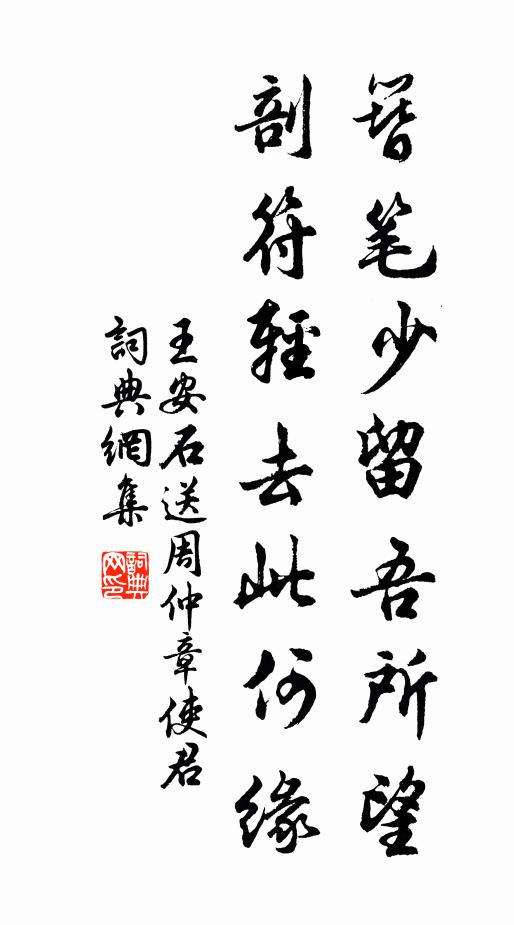 簪笔少留吾所望
剖符輕去此何緣
王安石送周仲章使君
詞典網集
詞典网印